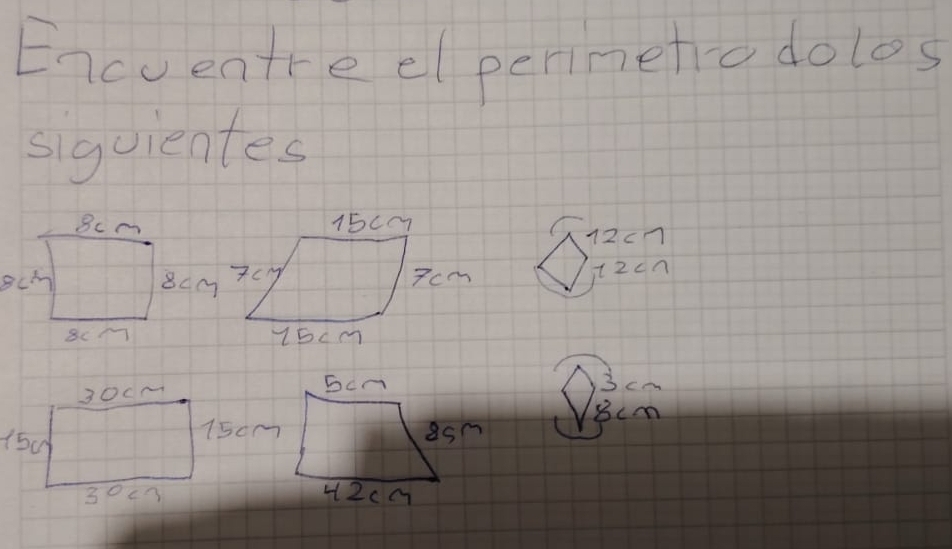 Encuentre el perimetro dolos
siguientes
8cm 15cm 12cm
8cm 8cm 7cm 7cm 12cm
8cm 15cm
30cm 5cm 3cm
15cm 15cm 8cm 8cm
30cm 42cm